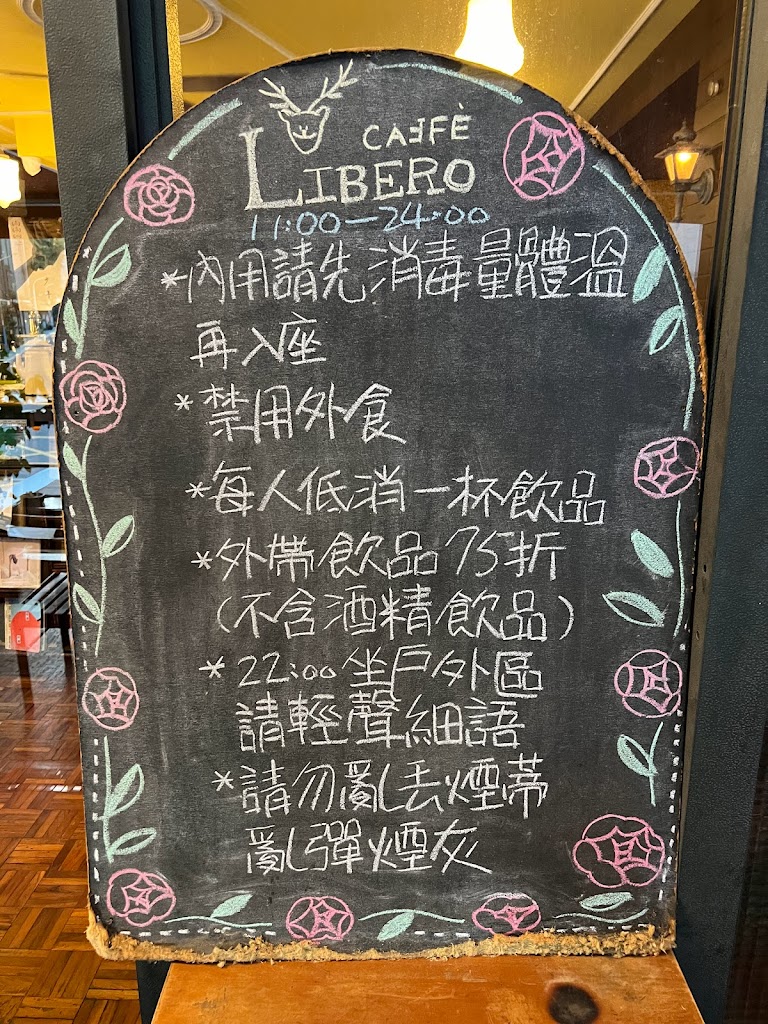 CAFFÈ
LIBERO
11:00—24:00
*內用請先消毒量體溫
再入座
*禁用外食
*每人低消一杯飲品
*外帶飲品75折
(不含酒精飲品)
*22:00坐戶外區
請輕聲細語
*請勿亂丟煙蒂
亂彈煙灰